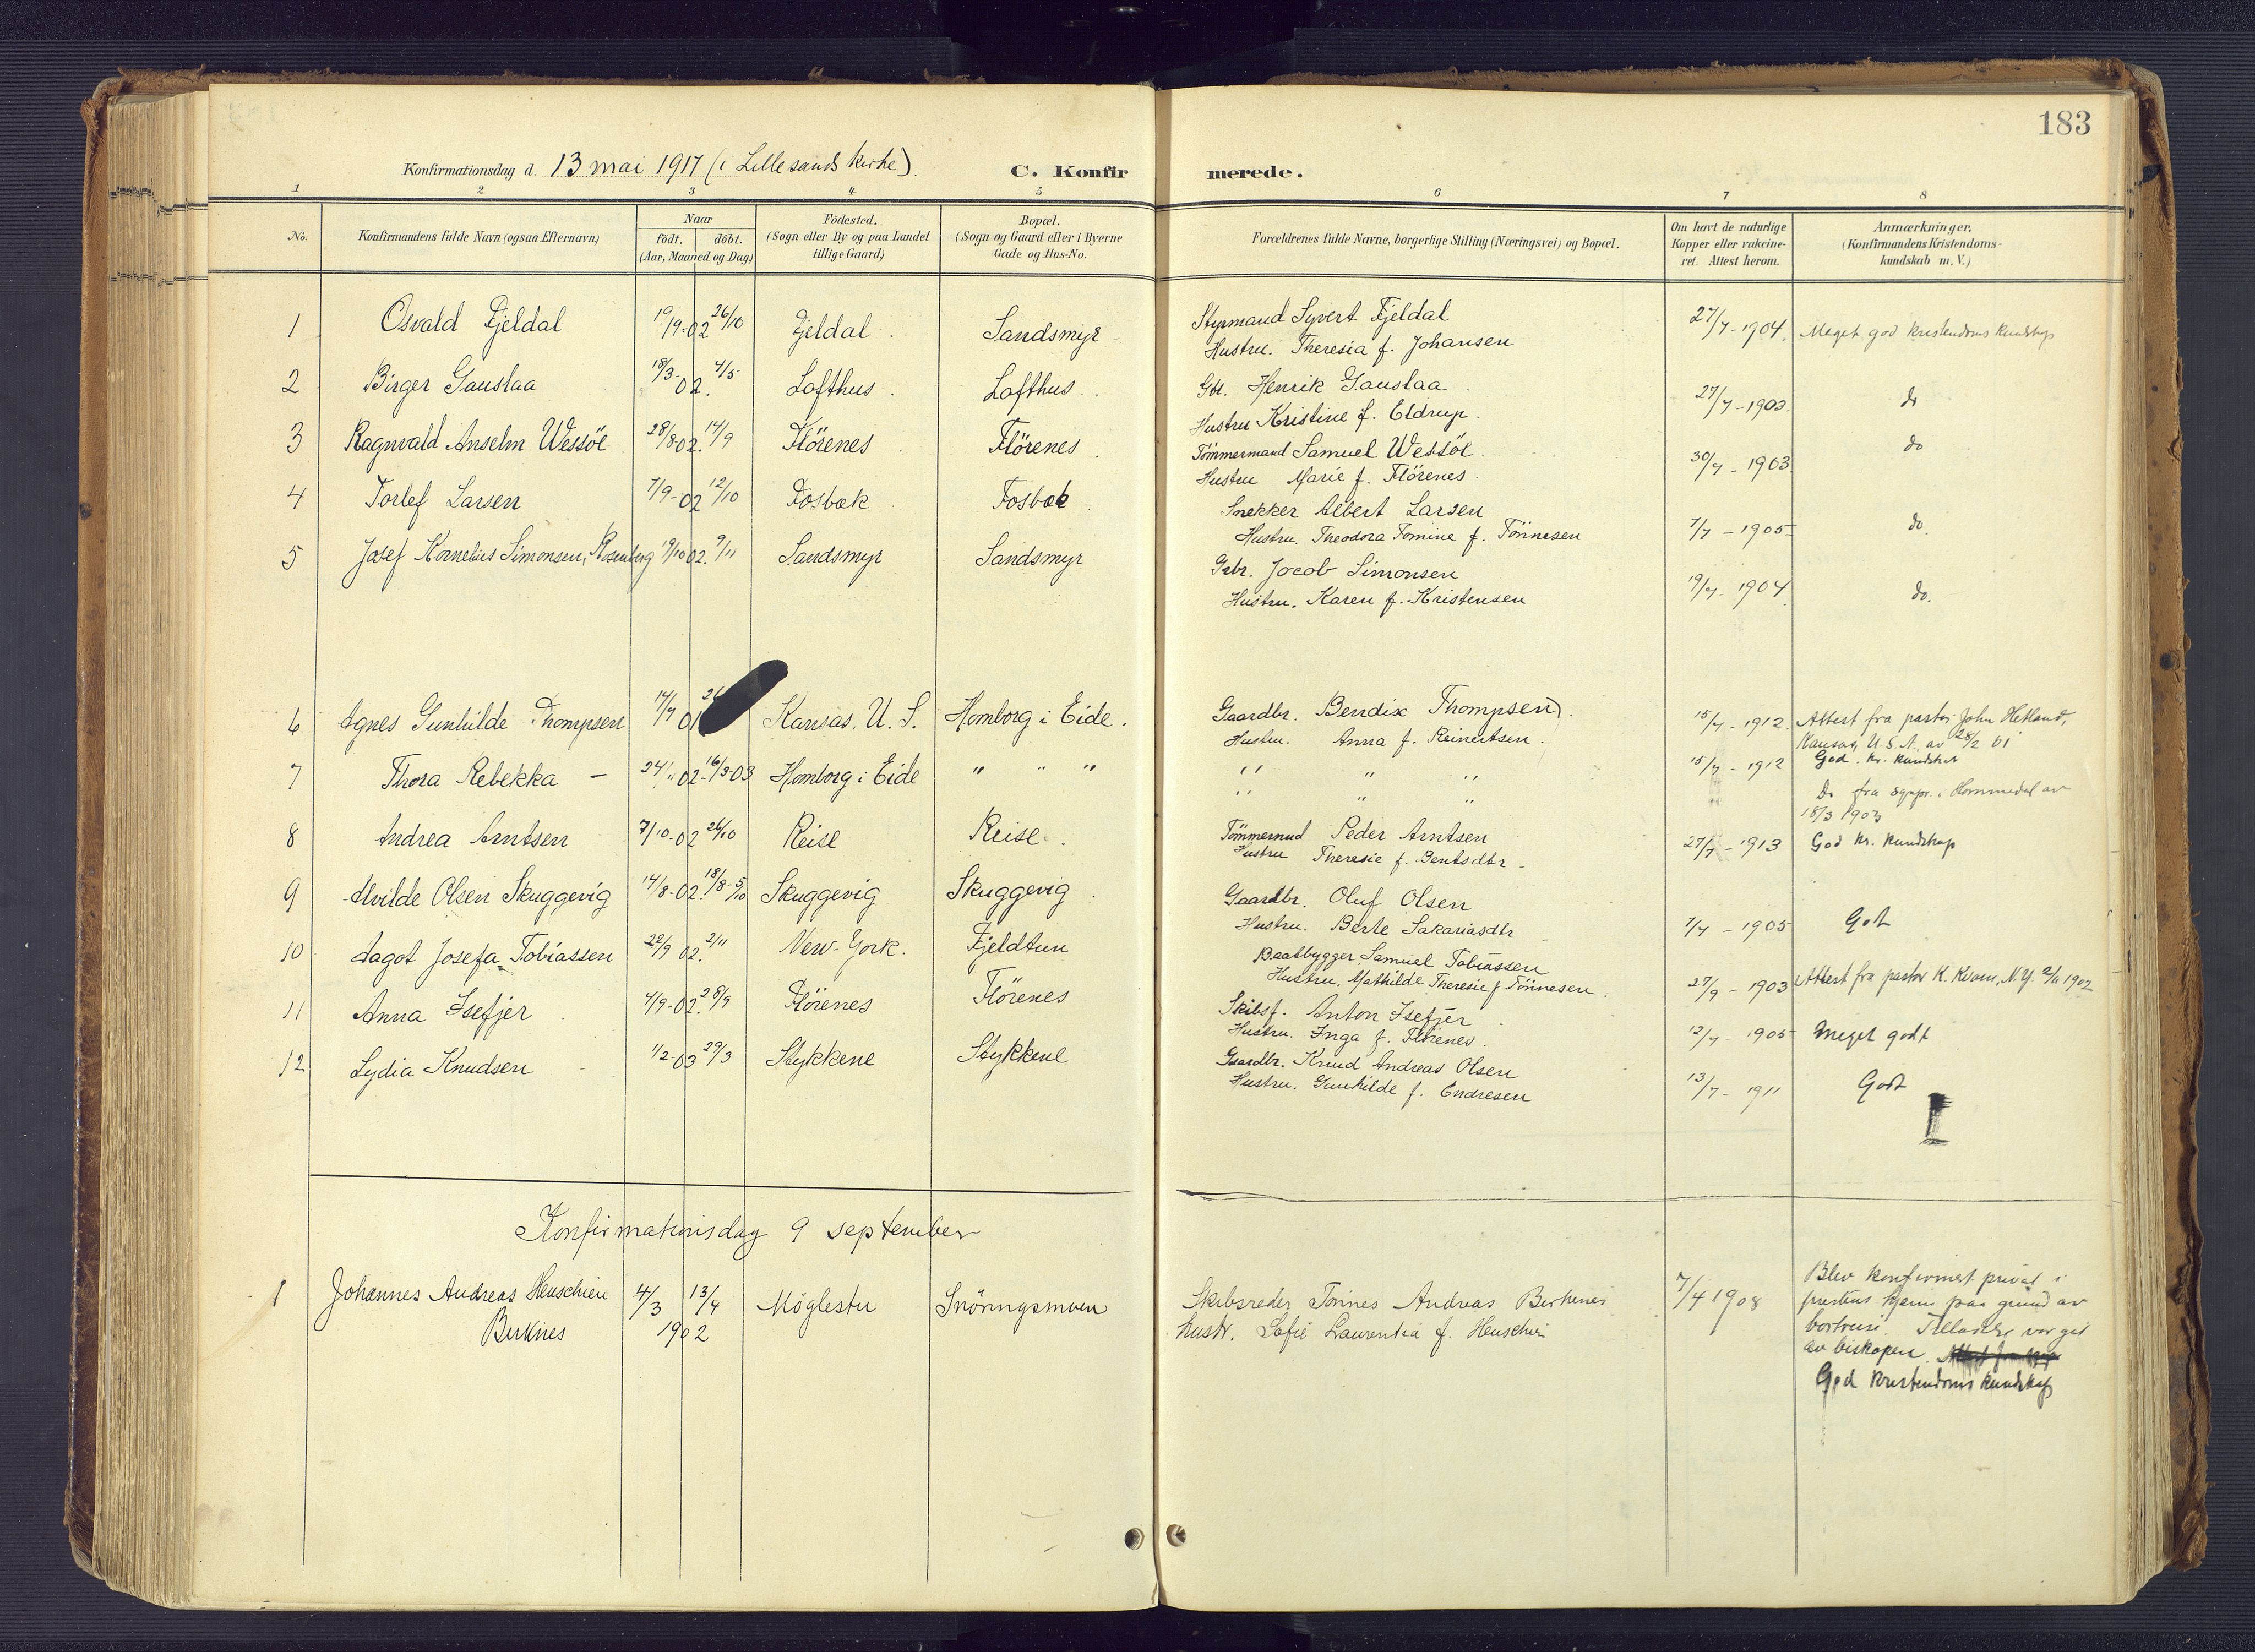 183
Konfirmationsdag d. 13 mai 1917 (i Lillesands kirke). C. Konfirmerede.
1 2 3 4 5 6 7 8
No. Konfirmandens fulde Navn (ogsaa Efternavn) Naar födt. döbt. (Aar, Maaned og Dag) Födested. (Sogn eller By og paa Landet tillige Gaard) Bopæl. (Sogn og Gaard eller i Byerne Gade og Hus-No. Forældrenes fulde Navne, borgerlige Stilling (Næringsvei) og Bopæl. Om havt de naturlige Kopper eller vakcineret. Attest herom. Anmærkninger, (Konfirmandens Kristendomskundskab m. V.)
1 Osvald Fjeldal 19/9-02 26/10 Fjeldal. Sandsmyr Styrmand Syvert Fjeldal 27/7-1904. Meget god kristendoms kundskap
Hustru. Theresia f. Johansen
2 Birger Gauslaa 18/3-02. 4/5 Lofthus. Lofthus. Gbr. Henrik Gauslaa 27/7-1903. do
Hustru Kristine f. Eldrup.
3 Ragnvald Anselm Wessöe 28/8 02. 14/9 Flörenes Flörenes Tömmermand Samuel Wessöe. 30/7-1903. do
Hustru Marie f. Flörenes
4 Torlef Larsen 7/9-02 12/10 Fosbæk Fosbæk Snekker Albert Larsen 7/7-1905 do.
Hustru. Theodora Tomine f. Tönnesen
5 Josef Kornelius Simonsen, Rosenberg 19/10 02. 9/11 Sandsmyr Sandsmyr Gbr. Jocob Simonsen 19/7-1904. do.
Hustru. Karen f. Kristensen
6 Agnes Gunhilde Thompsen 17/7 01 Kansas. U. S. Homborg i Eide. Gaardbr. Bendix Thompsen. 15/7-1912. Attest fra pastor John Hetland,
Hustru. Anna f. Reinertsen. Kansas, U. S. A. av 28/2 01
God. kr. kundskap
7 Thora Rebekka — 24/11 02-16/3-03 Homborg i Eide " " " " " " 15/7-1912
" " " Do fra sgnpr. i Hommedal av
18/3 1903
8 Andrea Arntsen 7/10-02 26/10 Reise Reise. Tömmermd Peder Arntsen 27/7-1913 God kr. kundskap
Hustru Theresie f. Bentsdtr.
9 Alvilde Olsen Skuggevig 14/8-02. 18/8-5/10 Skuggevig Skuggevig. Gaardbr. Oluf Olsen 7/7-1905 Godt
Hustru. Berte Sakariasdtr
10 Aagot Josefa Tobiassen 22/9 02. 2/11 New-York. Fjeldtun Baatbygger Samuel Tobiassen 27/9-1903 Attest fra pastor K. Kvam, N.Y. 2/11 1902
Hustru. Mathilde Theresie f Tönnesen.
11 Anna Isefjer 4/9-02. 28/9 Flörenes Flörenes Skibsf. Anton Isefjer 12/7-1905 Meget godt
Hustru. Inga f. Flörenes.
12 Lydia Knudsen 1/2-03 29/3 Stykkene Stykkene Gaardbr. Knud Andreas Olsen 13/7-1911 Godt
Hustru. Gunhilde f. Endresen
Konfirmationsdag 9 september
1 Johannes Andreas Henschien 4/3 13/4 Möglestu Snöringsmoen Skibsreder Tönnes Andreas Birkenes 7/4 1908 Blev konfirmert privat i
Birknes 1902 hustr. Sofie Laurentia f. Henschien prestens hjem paa grund av
bortreise. Tilladelse var git
av biskopen.
God kristendoms kundskap